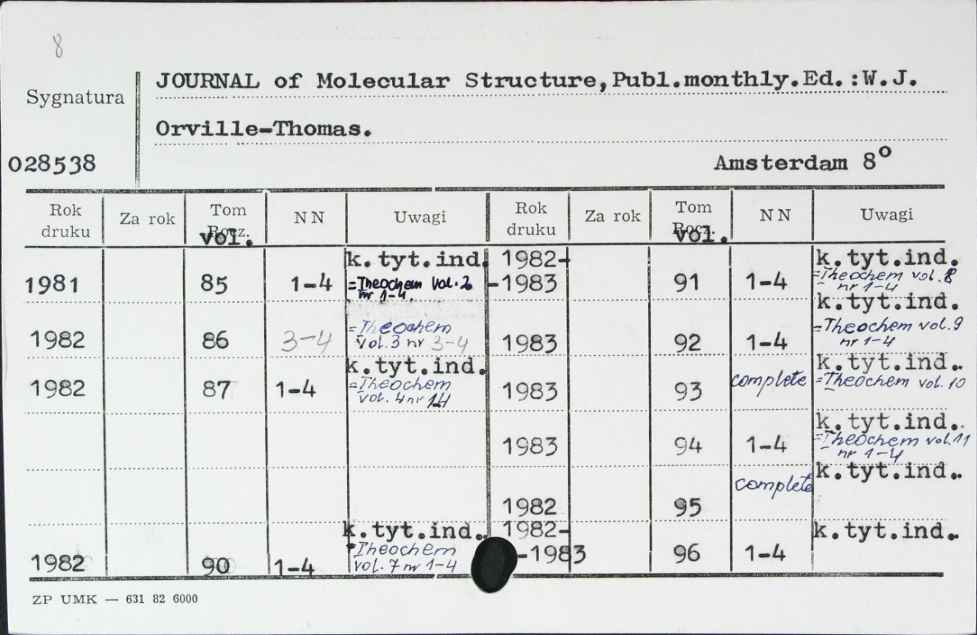 8
Sygnatura
JOURNAL of Molecular Structure, Publ.monthly.Ed.:W.J.
Orville-Thomas.
028538
Amsterdam 8°
Rok druku Za rok Tom vol. NN Uwagi Rok druku Za rok Tom vol. NN Uwagi
1981 85 1-4 k.tyt.ind. =Theochem vol.2 nr 1-4
1982 86 3-4 =Theochem vol.3 nr 3-4
1982 87 1-4 k.tyt.ind. =Theochem vol. 4 nr 1-4
1982 90 1-4 k.tyt.ind. Theochem vol. 7 nr 1-4
1982--1983 91 1-4 k.tyt.ind. =Theochem vol. 8 nr 1-4
1983 92 1-4 k.tyt.ind. =Theochem vol. 9 nr 1-4
1983 93 complete k.tyt.ind. =Theochem vol. 10
1983 94 1-4 k.tyt.ind. =Theochem vol.11 nr 1-4
1982 95 complete k.tyt.ind.
1982--1983 96 1-4 k.tyt.ind.
ZP UMK — 631 82 6000